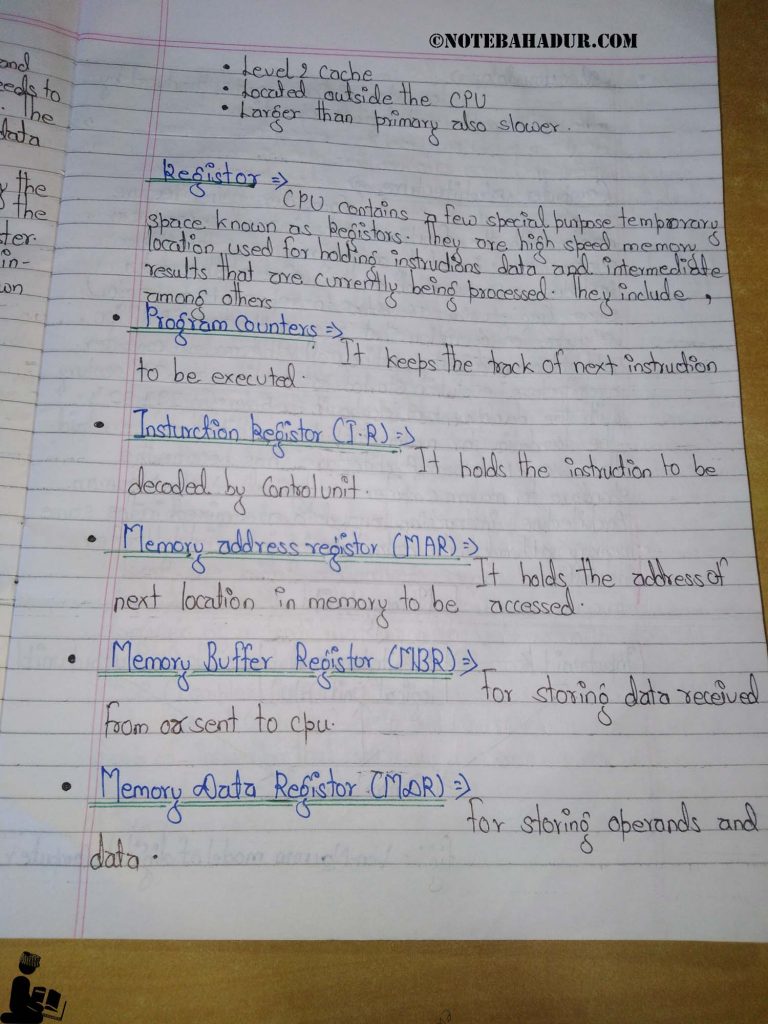 ©NOTEBAHADUR.COM
and
eeds to
. The
data
y the
the
ter.
in-
wn
• Level 2 Cache
• Located outside the CPU
• Larger than primary also slower.
Registor ⇒
CPU contains a few special purpose temporary
space known as Registors. They are high speed memory
location used for holding instructions data and intermediate
results that are currently being processed. They include,
among others
• Program Counters ⇒
It keeps the track of next instruction
to be executed.
• Insturction Registor (I.R) ⇒
It holds the instruction to be
decoded by Control unit.
• Memory address registor (MAR) ⇒
It holds the address of
next location in memory to be accessed.
• Memory Buffer Registor (MBR) ⇒
For storing data received
from or sent to cpu.
• Memory Data Registor (MDR) ⇒
For storing operands and
data.